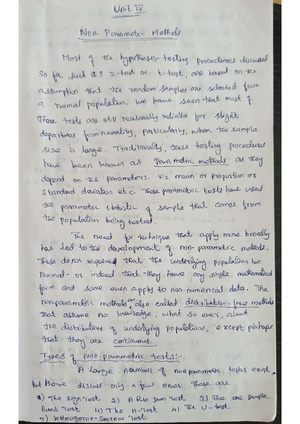 Unit IV
Non-Parametric Methods
Most of the hypotheses testing procedures discussed
so far such as z-test or t-test, are based on the
assumption that the random samples are selected from
a normal population. We have seen that most of
these tests are still reasonably reliable for slight
departures from normality, particularly, when the sample
size is large. Traditionally, these testing procedures
have been known as Parametric methods as they
depend on its parameters. Viz mean or proportion or
Standard deviation etc. These parametric tests have used
the parametric statistic of sample that comes from
the population being tested.
The need for technique that apply more broadly
has led to the development of non-parametric methods.
These do not required that the underlying population be
normal - or indeed that they have any single mathematical
form and some even applys to non-numerical data. The
nonparametric methods also called distribution-free methods
that assume no knowledge, what so ever, about
the distribution of underlying populations, except perhaps
that they are continuous.
Types of non-parametric tests:-
A large numbers of nonparametric tests exist
but Here discuss only a few ones. Those are
1) The sign Test 2) A Run Sum Test 3) The one sample
Runs Test 4) The H-Test 4) The U-Test
5) Kolmogorov-Smirnov Test